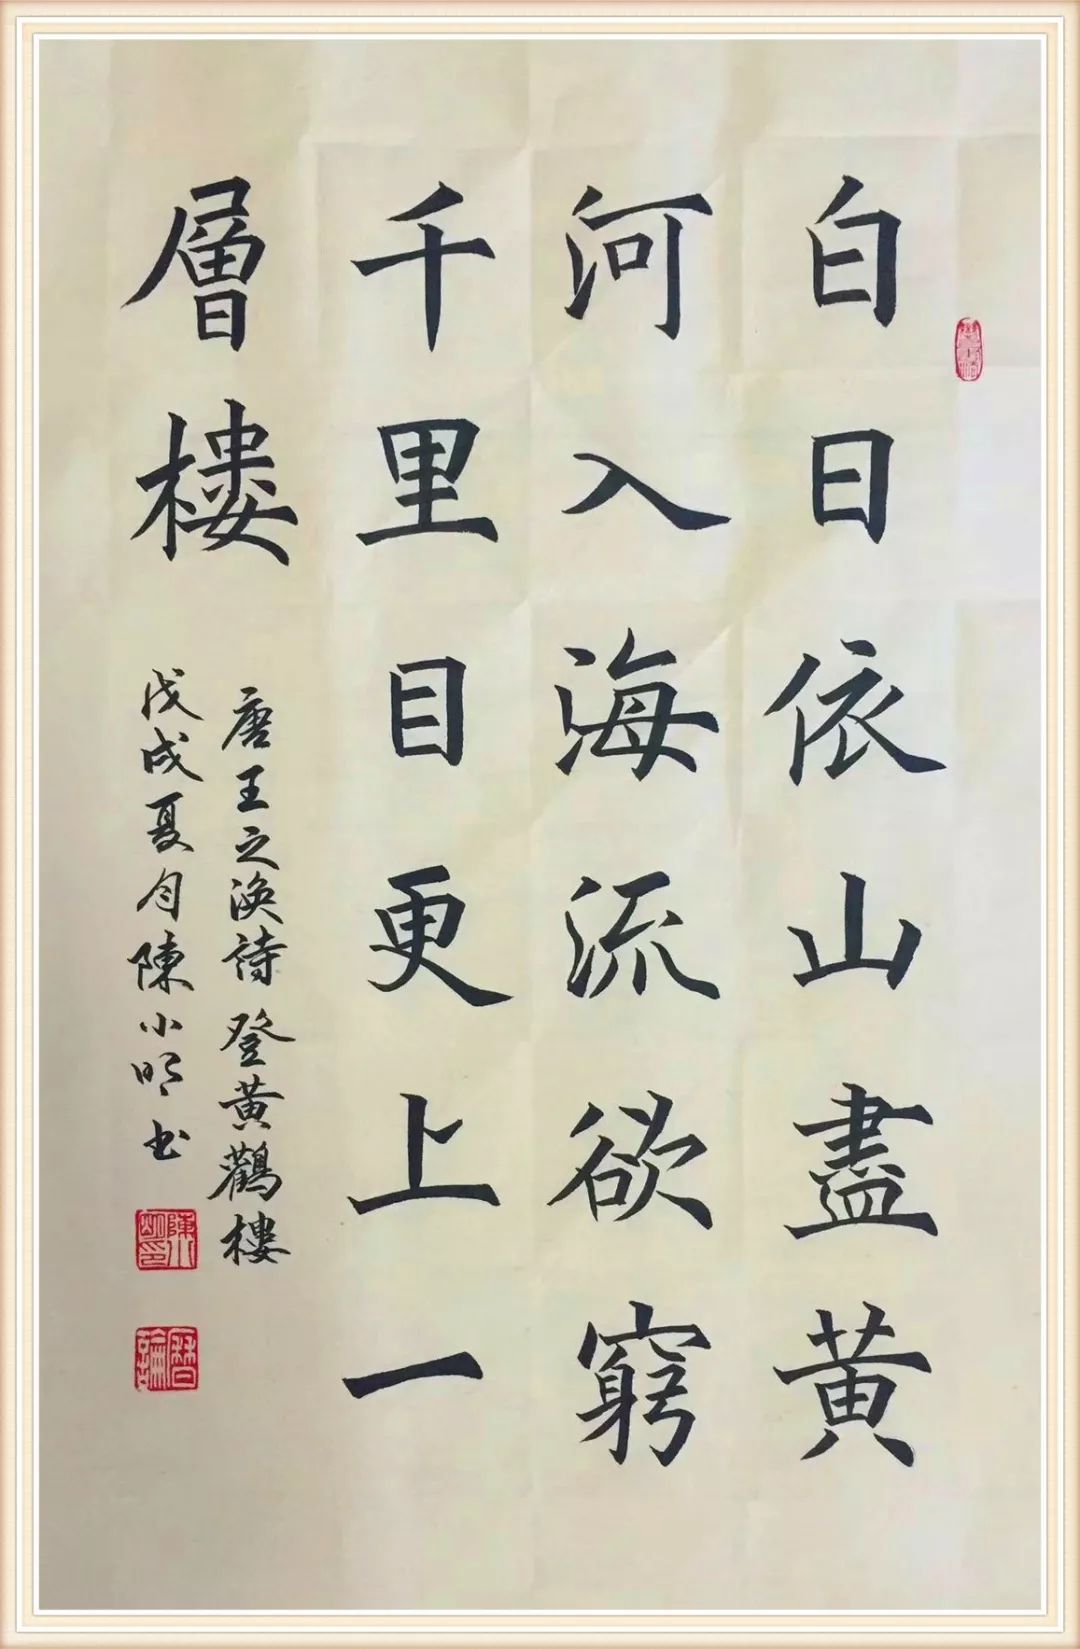 白日依山盡黄
河入海流欲窮
千里目更上一
層樓
唐王之涣詩登黄鸛樓
戊戌夏月陳小明书